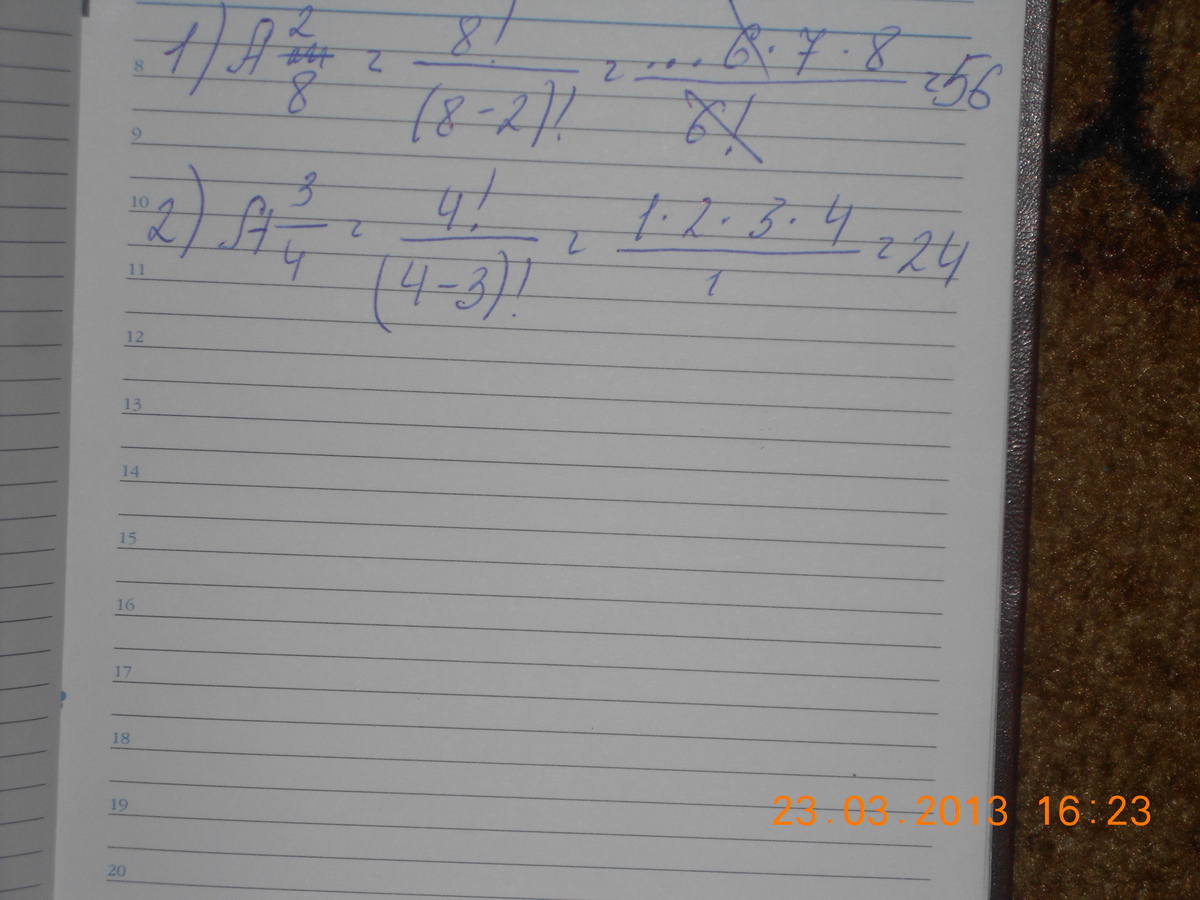 1) A 2/8 = 8!/(8-2)! = ... 6 · 7 · 8/6! = 56
8
9
2) A 3/4 = 4!/(4-3)! = 1 · 2 · 3 · 4/1 = 24
10
11
12
13
14
15
16
17
18
19
20
23.03.2013 16:23